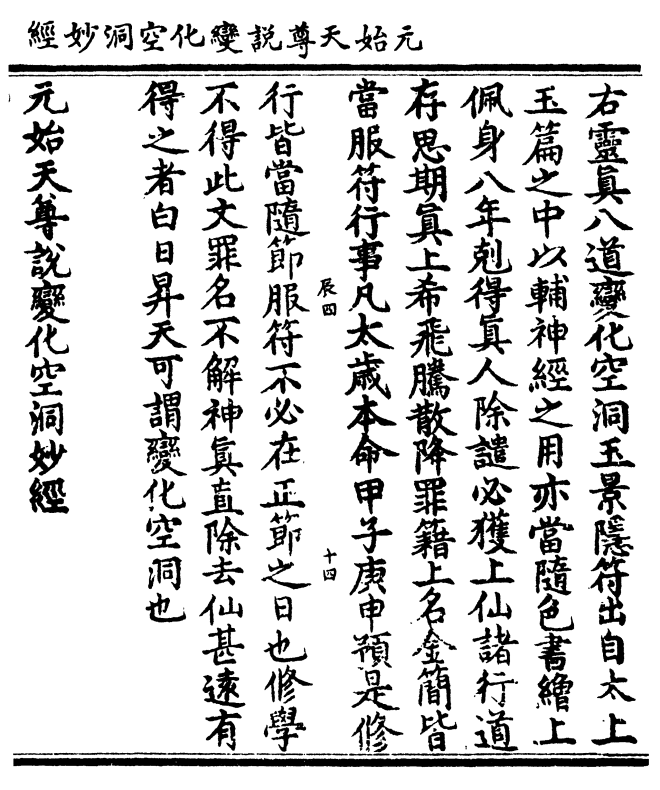 元始天尊說變化空洞妙經
右靈眞八道變化空洞玉景隱符出自太上
玉篇之中以輔神經之用亦當隨色書繒上
佩身八年剋得眞人除譴必獲上仙諸行道
存思期眞上希飛騰散降罪籍上名金簡皆
當服符行事凡太歲本命甲子庚申預是修
辰四
十四
行皆當隨節服符不必在正節之日也修學
不得此文罪名不解神眞直除去仙甚遠有
得之者白日昇天可謂變化空洞也
元始天尊說變化空洞妙經